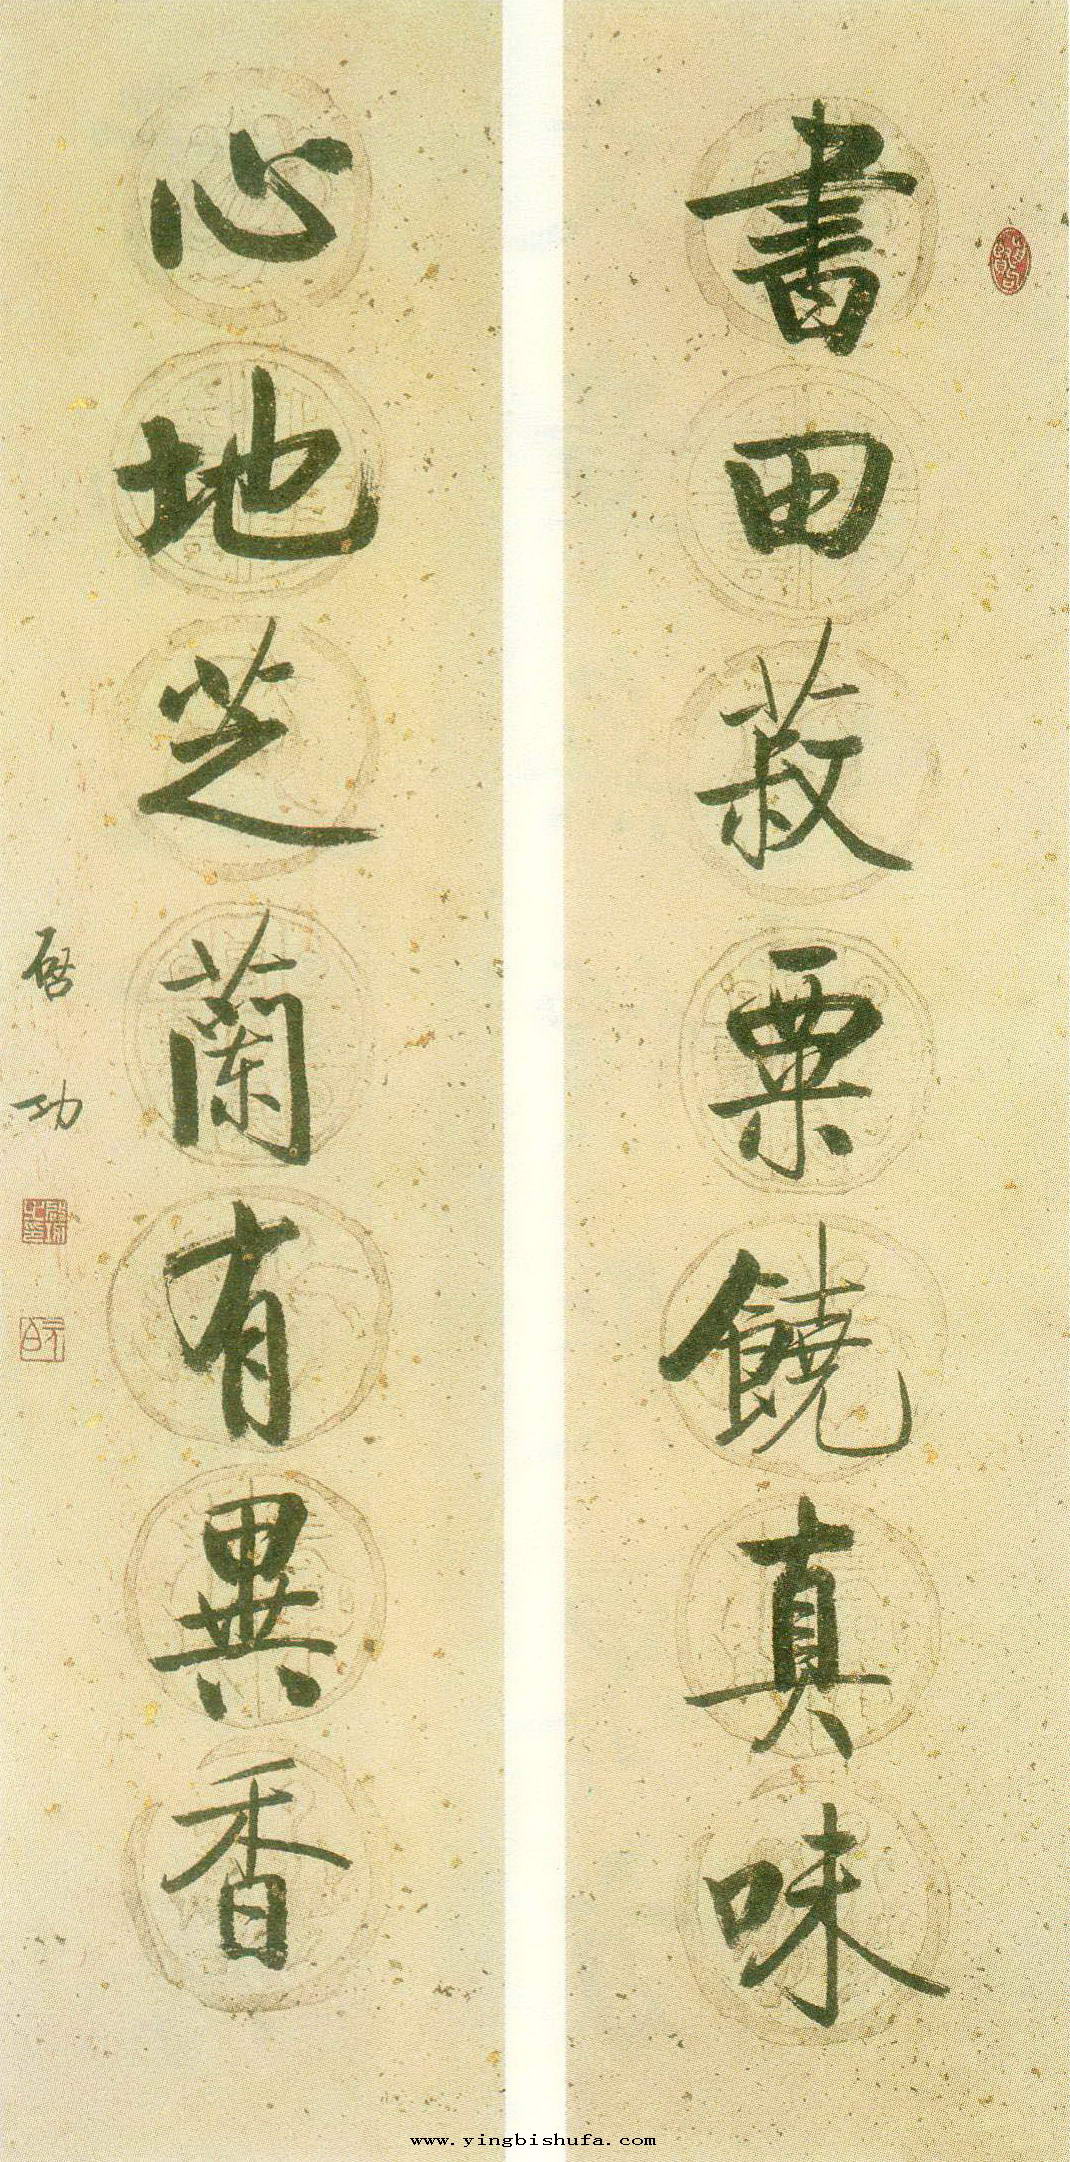 書田菽粟饒真味
心地芝蘭有異香
启功
www.yingbishufa.com